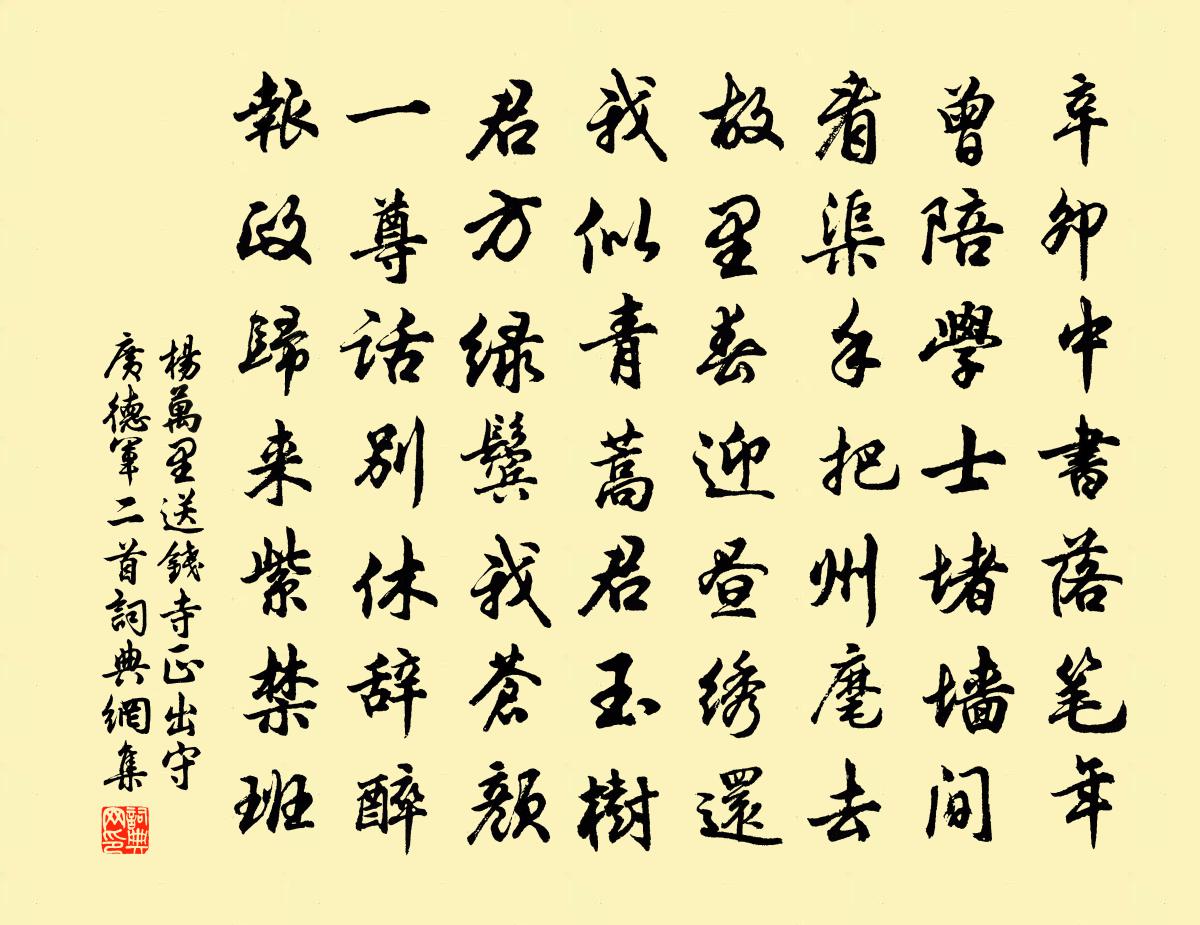 辛卯中書落笔年
曾陪學士堵墙间
看渠手把州麾去
故里春迎昼绣還
我似青蒿君玉樹
君方绿鬓我蒼顔
一尊话别休辞醉
報政歸来紫禁班
楊萬里送錢寺正出守
廣德軍二首詞典網集
詞典
网印